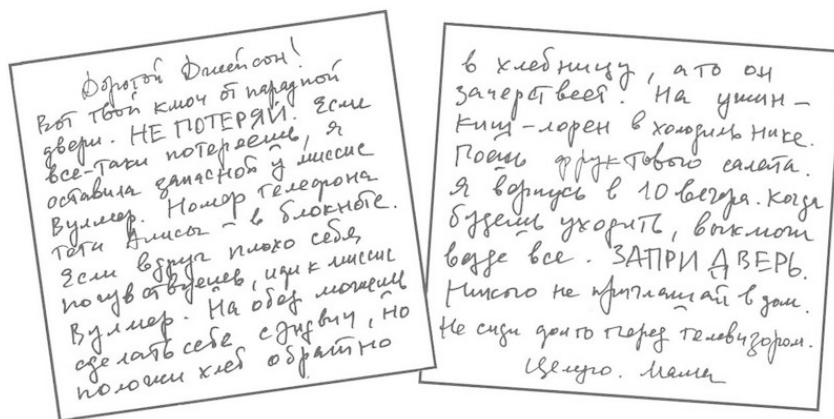 Дорогой Джейсон!
Вот твой ключ от парадной
двери. НЕ ПОТЕРЯЙ. Если
все-таки потеряешь, я
оставила запасной у миссис
Вуллмер. Номер телефона
тети Алисы – в блокноте.
Если вдруг плохо себя
почувствуешь, иди к миссис
Вуллмер. На обед можешь
сделать себе сэндвич, но
положи хлеб обратно
в хлебницу, а то он
зачерствеет. На ужин –
киш-лорен в холодильнике.
Поешь фруктового салата.
Я вернусь в 10 вечера. Когда
будешь уходить, выключи
везде все. ЗАПРИ ДВЕРЬ.
Никого не приглашай в дом.
Не сиди долго перед телевизором.
Целую. Мама